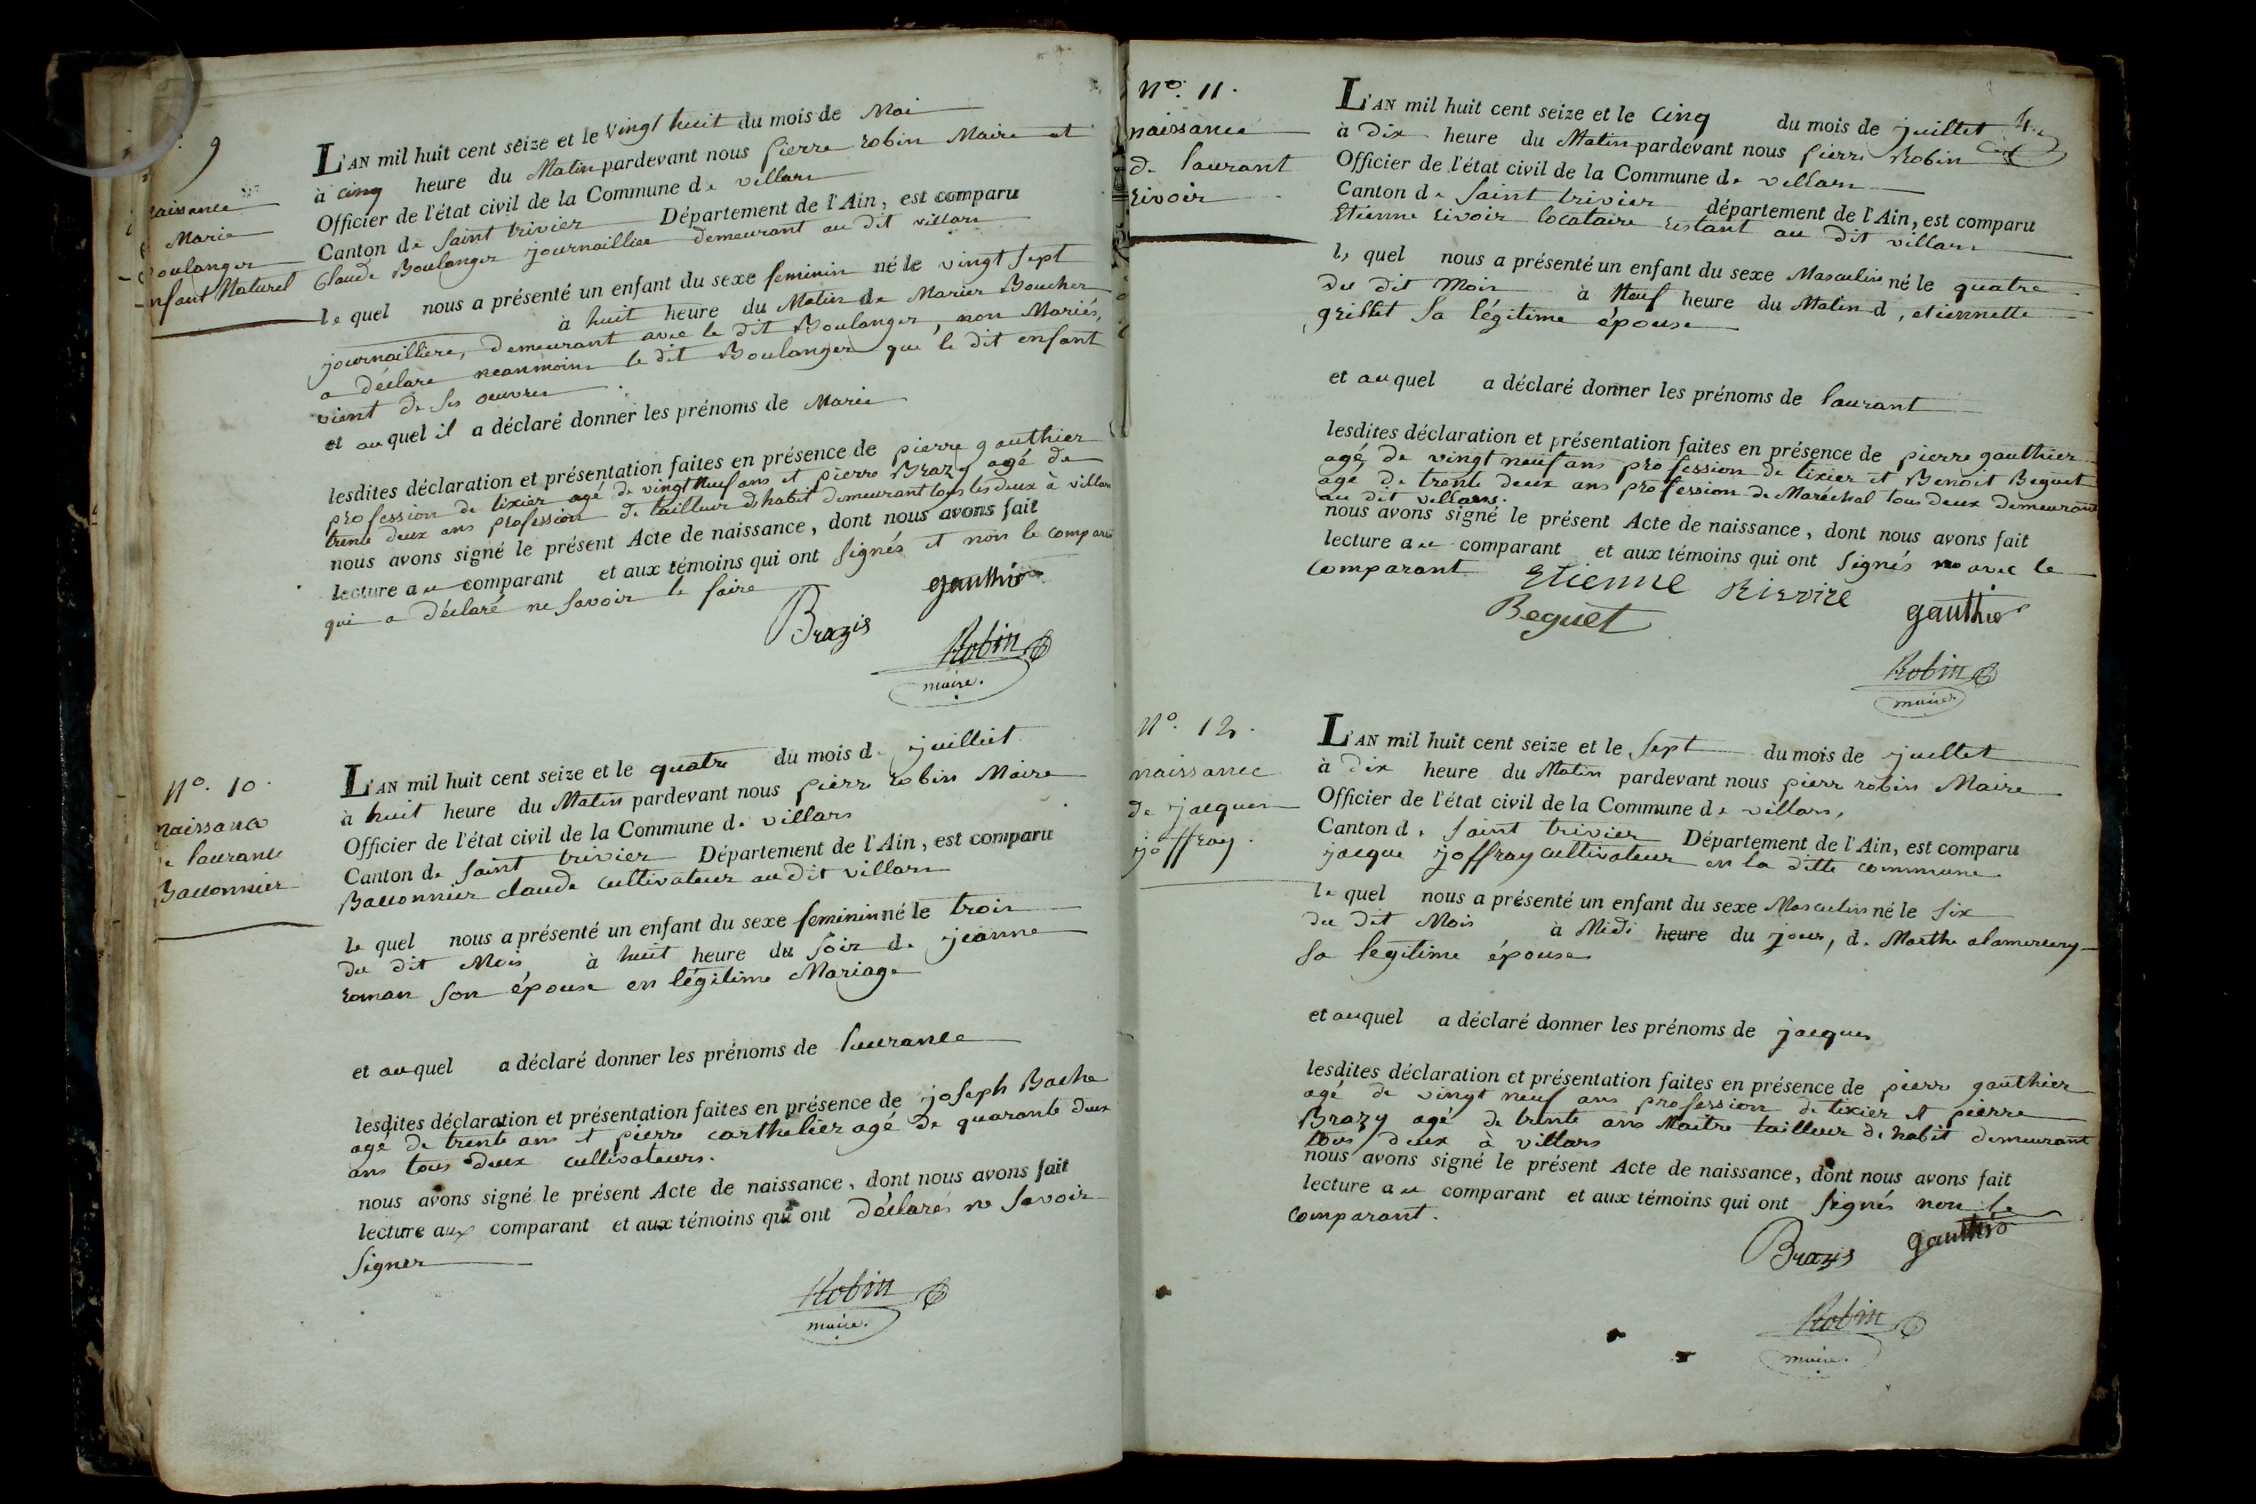 9
naissance
Marie
Boulanger
enfant Naturel
L'AN mil huit cent seize et le vingt huit du mois de Mai
à cinq heure du Matin pardevant nous pierre robin Maire et
Officier de l'état civil de la Commune de villars
Canton de saint trivier Département de l'Ain, est comparu
Claude Boulanger journaillier demeurant au dit villars
le quel nous a présenté un enfant du sexe feminin né le vingt sept
à huit heure du Matin de Marier Boucher
journailliere, demeurant avec le dit Boulanger, non Mariés,
a déclaré neanmoins le dit Boulanger que le dit enfant
vient de ses oeuvres
et au quel il a déclaré donner les prénoms de Marie
lesdites déclaration et présentation faites en présence de pierre gauthier
profession de tixier agé de vingt neuf ans et pierre Brazy agé de
trente deux ans profession de tailleur d'habit demeurant tous les deux à villars
nous avons signé le présent Acte de naissance, dont nous avons fait
lecture au comparant et aux témoins qui ont signés et non le comparant
qui a déclaré ne savoir le faire
gauthier
Brazis
Robin
maire.
N°. 10.
naissance
de laurance
Baconnier
L'AN mil huit cent seize et le quatre du mois de juilliet
à huit heure du Matin pardevant nous pierre robin Maire
Officier de l'état civil de la Commune de villars
Canton de saint trivier Département de l'Ain, est comparu
Baconnier claude cultivateur au dit villars
le quel nous a présenté un enfant du sexe feminin né le trois
du dit Mois à huit heure du soir de jeanne
roman son épouse en légitime Mariage
et au quel a déclaré donner les prénoms de laurance
lesdites déclaration et présentation faites en présence de joseph Bache
agé de trente ans et pierre carthelier agé de quarante deux
ans tous deux cultivateurs.
nous avons signé le présent Acte de naissance, dont nous avons fait
lecture aux comparant et aux témoins qui ont déclarés ne savoir
signer
Robin
maire.
N°. 11.
naissance
de laurant
rivoir
L'AN mil huit cent seize et le cinq du mois de juillet
à dix heure du Matin pardevant nous pierre Robin
Officier de l'état civil de la Commune de villars
Canton de saint trivier département de l'Ain, est comparu
Etienne rivoir locataire restant au dit villars
le quel nous a présenté un enfant du sexe Masculin né le quatre
du dit Mois à Neuf heure du Matin de etiennette
grillet sa légitime épouse
et au quel a déclaré donner les prénoms de laurant
lesdites déclaration et présentation faites en présence de pierre gauthier
agé de vingt neuf ans profession de tixier et Benoit Beguet
agé de trente deux ans profession de Maréchal tous deux demeurant
au dit villars.
nous avons signé le présent Acte de naissance, dont nous avons fait
lecture au comparant et aux témoins qui ont signés avec le
comparant
Etienne Rirvire
Beguet gauthier
Robin
maire
N°. 12.
naissance
de jacques
joffray.
L'AN mil huit cent seize et le sept du mois de juillet
à dix heure du Matin pardevant nous pierr robin Maire
Officier de l'état civil de la Commune de villars,
Canton de saint trivier Département de l'Ain, est comparu
jacque joffray cultivateur en la ditte commune.
le quel nous a présenté un enfant du sexe Masculin né le six
du dit Mois à Midi heure du jour, de Marthe alamercery
sa legitime épouse
et au quel a déclaré donner les prénoms de jacques
lesdites déclaration et présentation faites en présence de pierre gauthier
agé de vingt neuf ans profession de tixier et pierre
Brazy agé de trente ans Maitre tailleur d'habit demeurant
tous deux à villars
nous avons signé le présent Acte de naissance, dont nous avons fait
lecture au comparant et aux témoins qui ont signés non le
comparant.
Brazis gauthier
Robin
maire.